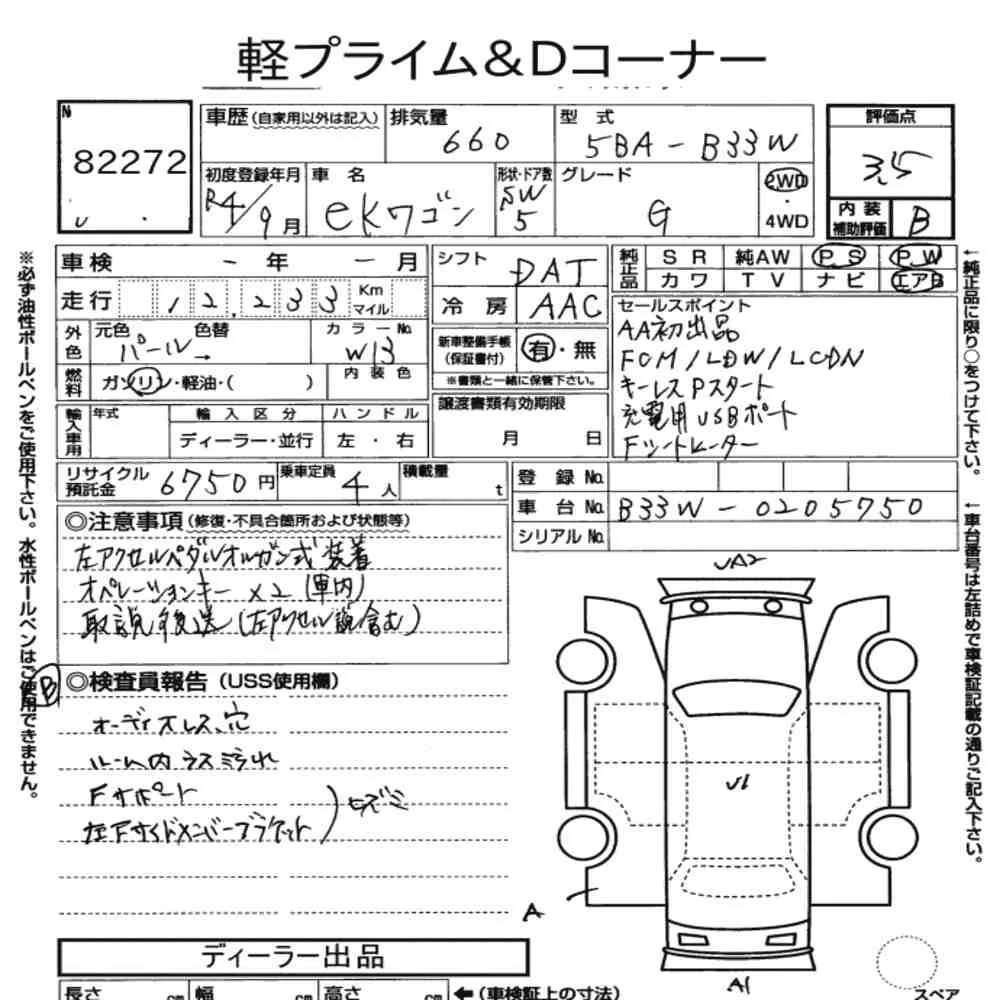 軽プライム&Dコーナー
№
82272
車歴(自家用以外は記入)
排気量
660
型式
5BA-B33W
評価点
3.5
初度登録年月
R4/9月
車名
eKワゴン
形状・ドア数
SW
5
グレード
G
2WD
・
4WD
内装
補助評価
B
車検 - 年 - 月
シフト
DAT
純正品
SR 純AW P.S P.W
カワ TV ナビ エアB
走行 12,233 Km マイル
冷房
AAC
セールスポイント
AA初出品
FCM/LDW/LCDN
キーレスPスタート
充電用USBポート
Fシートヒーター
外色
元色 色替
パール→
カラーNo.
W13
新車整備手帳
(保証書付)
有・無
※書類と一緒に保管下さい。
燃料
ガソリン・軽油・( )
内装色
譲渡書類有効期限
月 日
輸入車用
年式
輸入区分
ディーラー・並行
ハンドル
左・右
リサイクル
預託金
6750円
乗車定員
4人
積載量
t
登録No.
車台No. B33W-0205750
シリアルNo.
◎注意事項(修復・不具合箇所および状態等)
左アクセルペダルオルガン式装着
オペレーションキー×2(車内)
取説後送(左アクセル説含む)
B
◎検査員報告(USS使用欄)
オーディオレス、穴
ルーム内ラスミラれ
Fサポート
左Fサイドメンバーブラケット
)ヒズミ
UA2
U1
A
A1
ディーラー出品
長さ cm 幅 cm 高さ cm ←(車検証上の寸法)
スペア
※必ず油性ボールペンをご使用下さい。水性ボールペンはご使用できません。
←純正品に限り○をつけて下さい。
←車台番号は左詰めで車検証記載の通りご記入下さい。